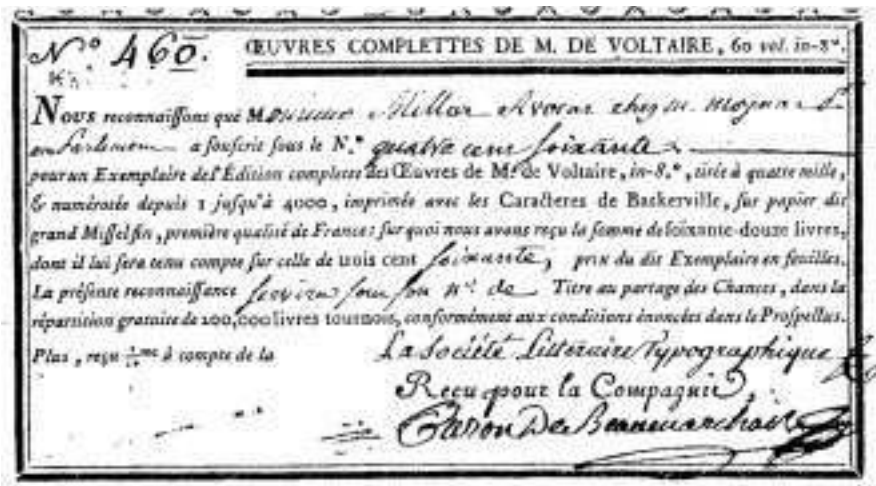 N.º 460. ŒUVRES COMPLETTES DE M. DE VOLTAIRE, 60 vol. in-8º.
Nous reconnaiſſons que Monsieur Millar Avocat chez m.
en Parlement a ſouſcrit ſous le N.º quatre cent ſoixante
pour un Exemplaire de l'Édition complette des Œuvres de M.r de Voltaire, in-8.º, tirée à quatre mille,
& numérotée depuis 1 juſqu'à 4000, imprimée avec les Caracteres de Baskerville, ſur papier dit
grand Meſſel fin, première qualité de France: ſur quoi nous avons reçu la ſomme de ſoixante-douze livres,
dont il lui ſera tenu compte ſur celle de trois cent ſoixante, prix du dit Exemplaire en feuilles.
La préſente reconnaiſſance ſervira ſous ſon n.º de Titre au partage des Chances, dans la
répartition gratuite de 200,000 livres tournois, conformément aux conditions énoncées dans le Proſpectus.
Plus, reçu à compte de la La Société Littéraire Typographique
Reçu pour la Compagnie,
Caron De Beaumarchais